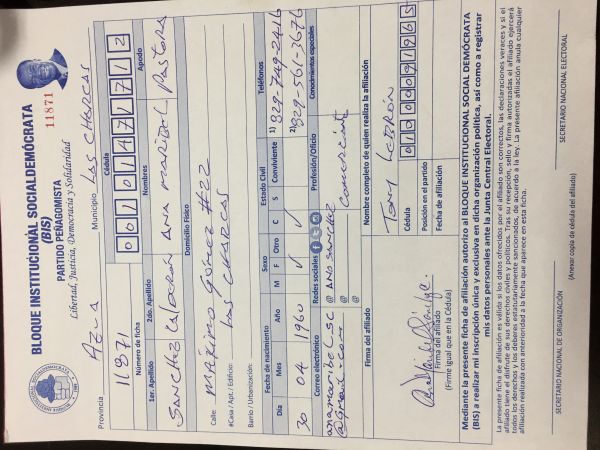 BLOQUE INSTITUCIONAL SOCIALDEMÓCRATA
(BIS)
PARTIDO PEÑAGOMISTA
Libertad, Justicia, Democracia y Solidaridad
11871
Provincia AZUA Municipio LAS CHARCAS
11871
Número de ficha
Cédula
00101471712
1er. Apellido 2do. Apellido Nombres Apodo
SANCHEZ CALDERÓN ANA MARIBEL PASTORA
Domicilio Físico
Calle: MÁXIMO GÓMEZ #22
#Casa / Apt. / Edificio
Barrio / Urbanización: LAS CHARCAS
Fecha de nacimiento Sexo Estado Civil Teléfonos
Día Mes Año M F Otro C S Conviviente 1) 829-749-2416
30 04 1960 ✓ ✓ 2) 829-561-3676
Correo electrónico Redes sociales Profesión/Oficio Conocimientos especiales
anamaribelsc @ ANA SANCHEZ
@gmail.com @ comerciante
Firma del afiliado Nombre completo de quien realiza la afiliación
TONY LEBRÓN
Cédula
01000091965
Posición en el partido
Fecha de afiliación
Firma del afiliado
(Firme igual que en la Cédula)
Mediante la presente ficha de afiliación autorizo al BLOQUE INSTITUCIONAL SOCIAL DEMÓCRATA
(BIS) a realizar mi inscripción única y exclusiva en dicha organización política, así como a registrar
mis datos personales ante la Junta Central Electoral.
La presente ficha de afiliación es válida si los datos ofrecidos por el afiliado son correctos, las declaraciones veraces y si el
afiliado tiene el disfrute de sus derechos civiles y políticos. Tras su recepción, sello y firma autorizadas el afiliado ejercerá
todos los derechos y los deberes estatutariamente sancionados, de acuerdo a la ley. La presente afiliación anula cualquier
afiliación realizada con anterioridad a la fecha que aparece en esta ficha.
SECRETARIO NACIONAL DE ORGANIZACIÓN SECRETARIO NACIONAL ELECTORAL
(Anexar copia de cédula del afiliado)